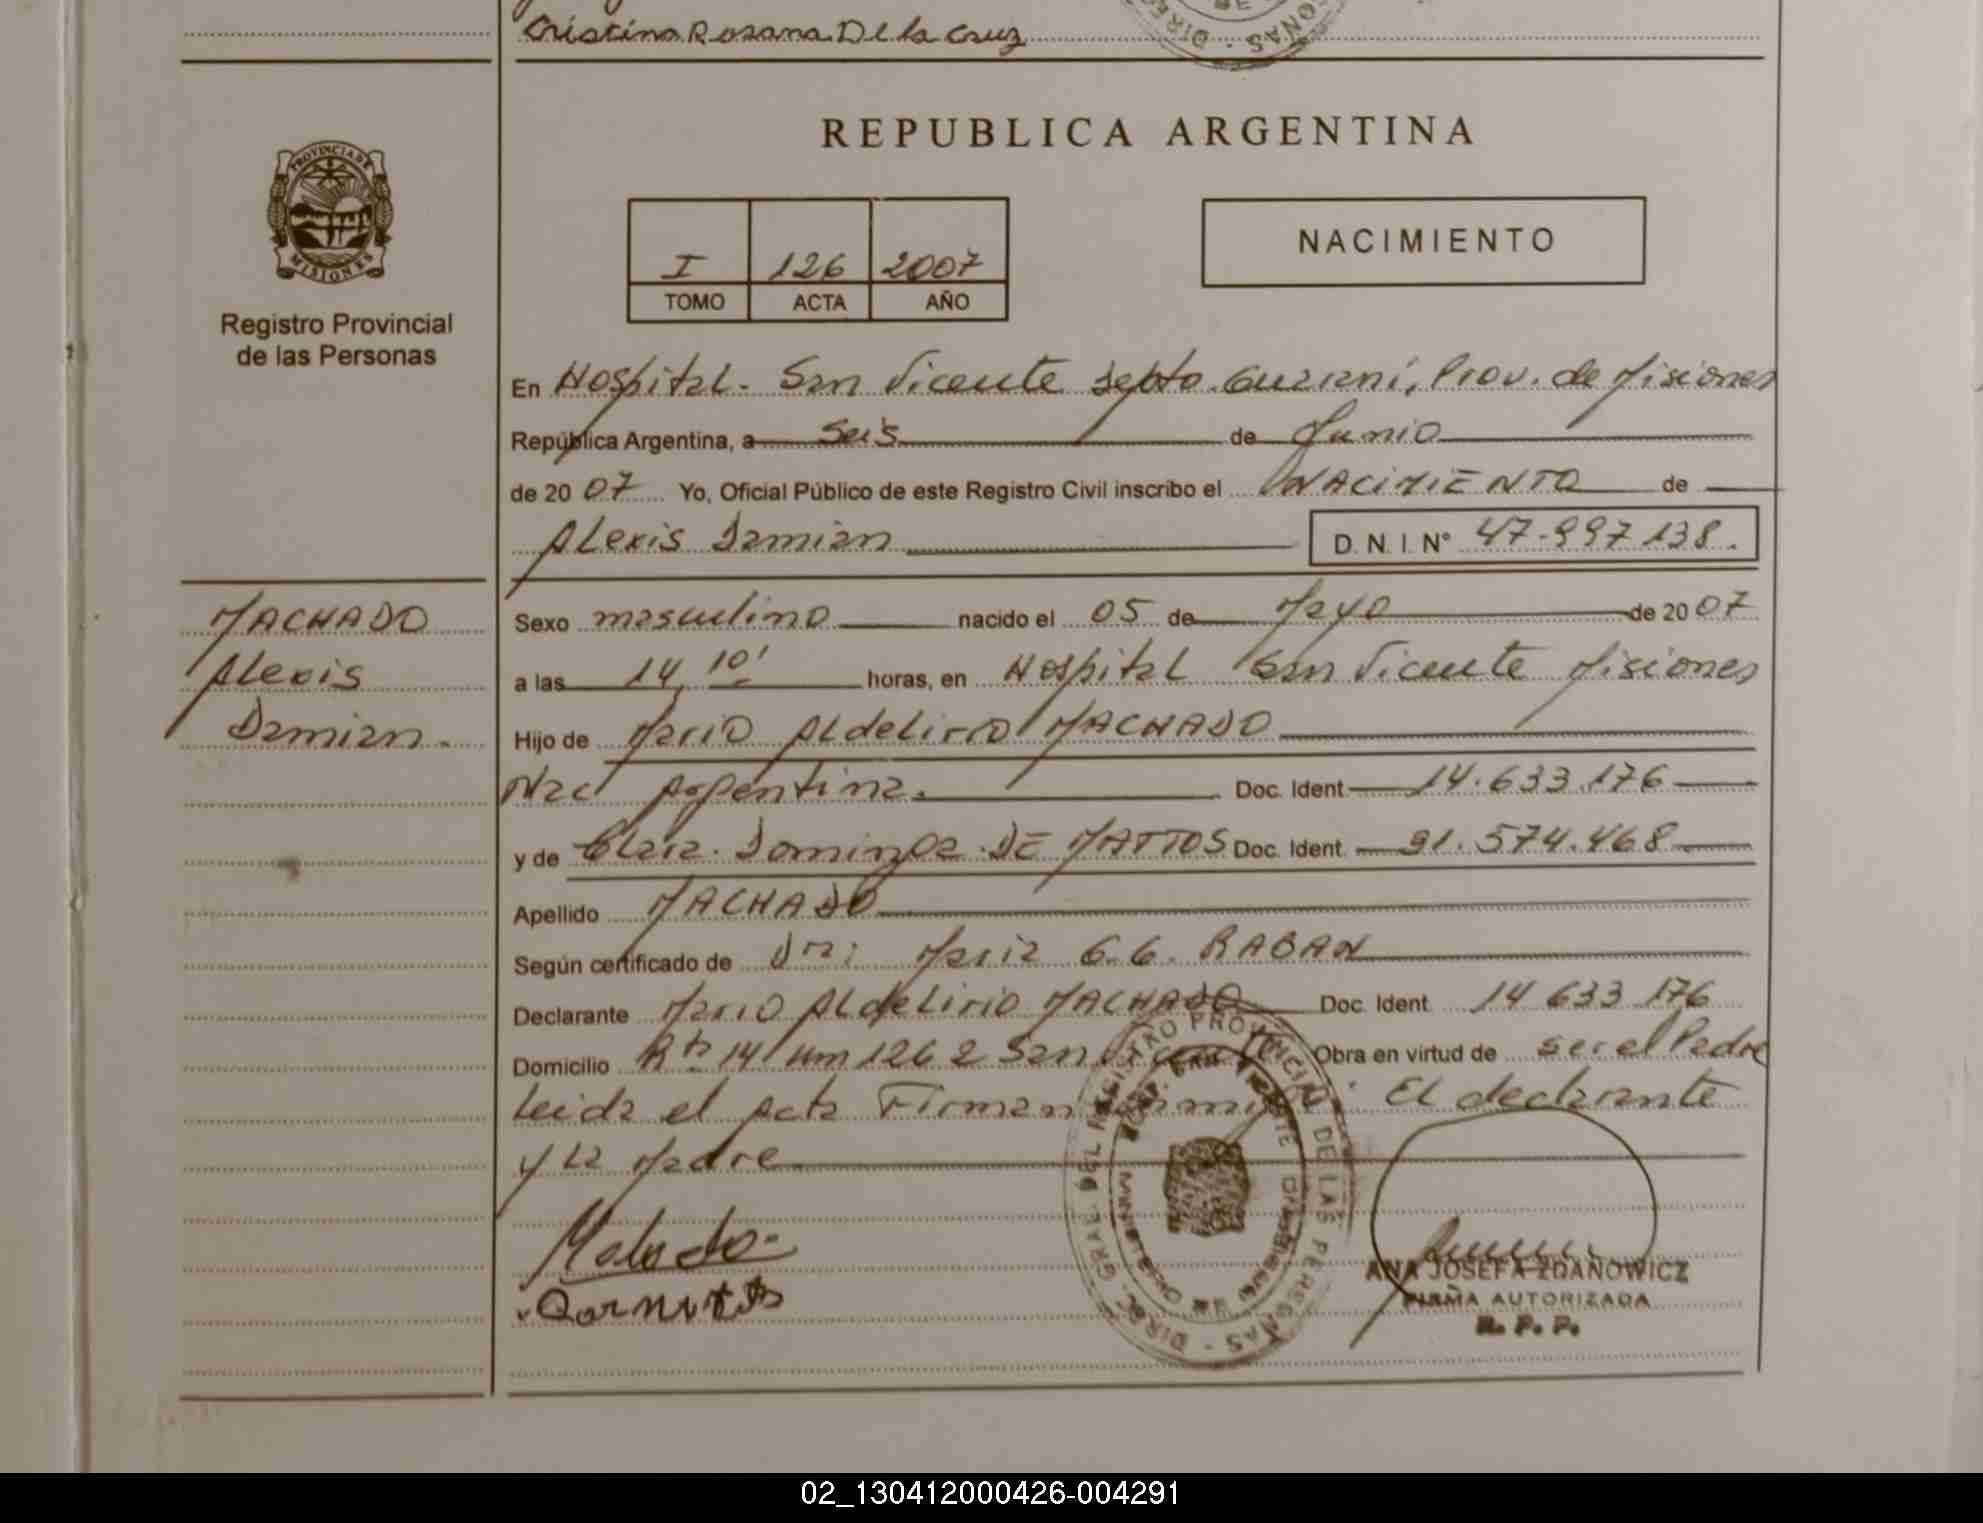 Cristina Rosana De la Cruz
PROVINCIA DE
MISIONES
Registro Provincial
de las Personas
REPUBLICA ARGENTINA
I 126 2007
TOMO ACTA AÑO
NACIMIENTO
En Hospital - San Vicente Depto. Guarani, Prov. de Misiones
República Argentina, a seis de Junio
de 2007 Yo, Oficial Público de este Registro Civil inscribo el NACIMIENTO de
Alexis Damian D.N.I. Nº 47.997.138.
MACHADO
Alexis
Damian.
Sexo masculino nacido el 05 de Mayo de 2007
a las 14,10' horas, en Hospital San Vicente Misiones
Hijo de Mario Aldelirio MACHADO
Nac Argentina. Doc. Ident. 14.633.176
y de Clara Dominga DE MATTOS Doc. Ident. 91.574.468
Apellido MACHADO
Según certificado de Dra: Maria G.G. RABAN
Declarante Mario Aldelirio MACHADO Doc. Ident. 14 633 176
Domicilio Rta 14 Km 1262 San Vicente Obra en virtud de ser el Padre
Leida el acta Firman El declarante
y La Madre
ANA JOSEFA ZDANOWICZ
FIRMA AUTORIZADA
R. P. P.
02_130412000426-004291